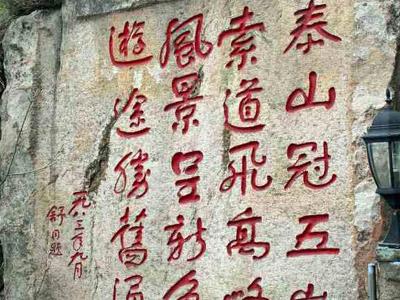 泰山冠五
索道飛高
風景呈新
遊途勝舊
一九八三年九月
舒同題